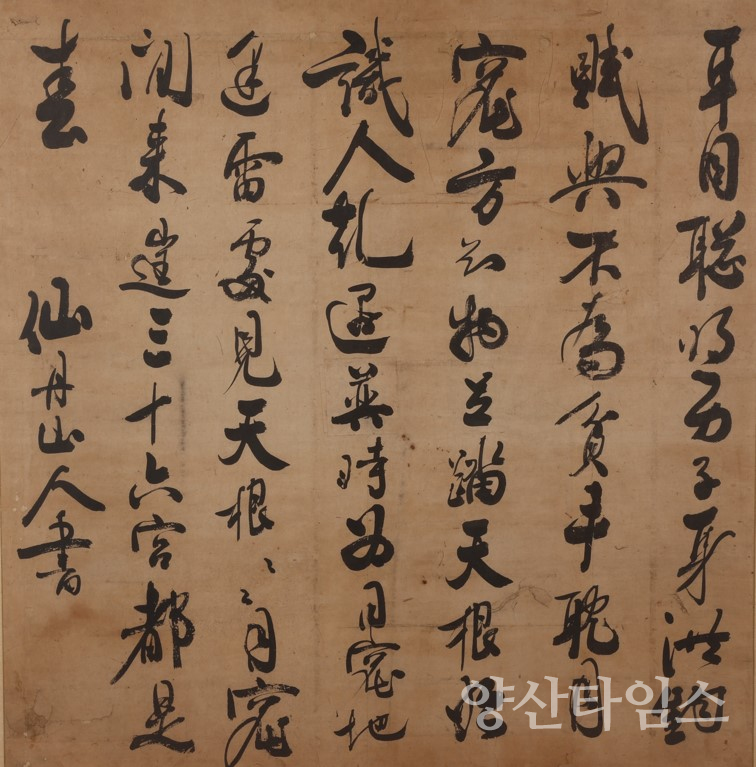 耳目聰明男子身洪鈞
賦與不爲貧手探月
窟方知物足踏天根始
識人乾遇巽時爲月窟地
逢雷處見天根〻〻月窟
閒來往三十六宮都是
春
仙丹山人書
양산타임스